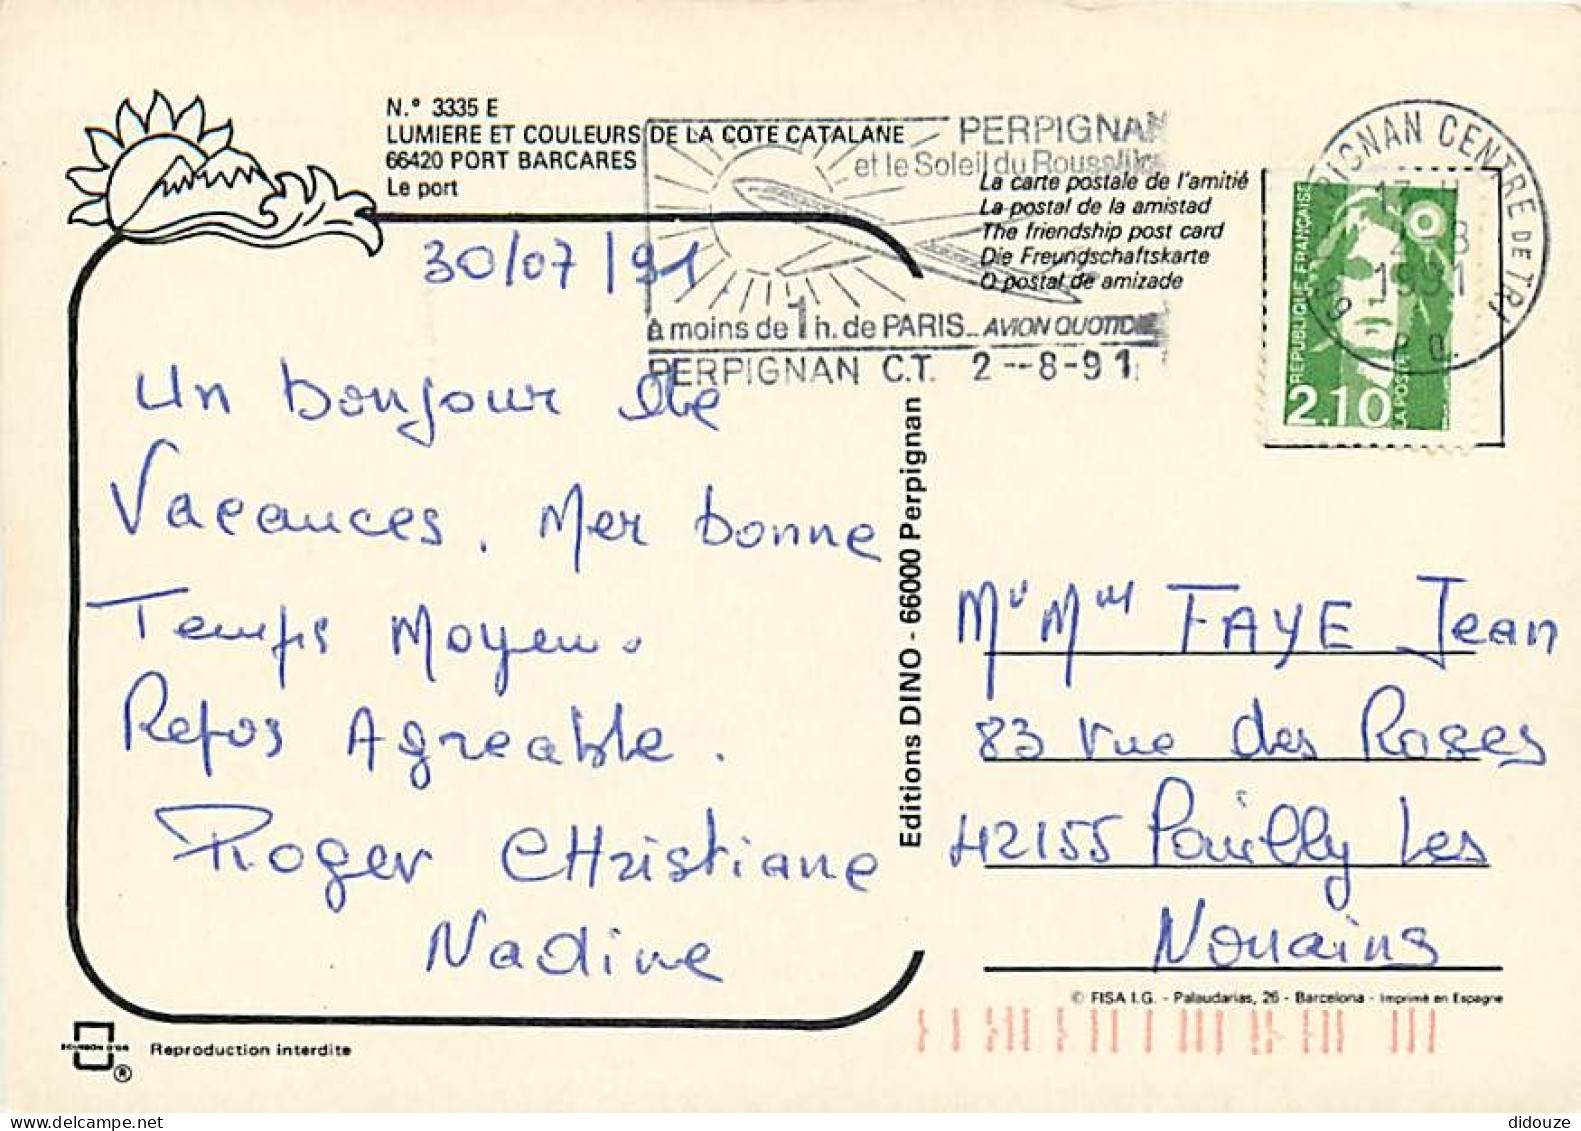 N.° 3335 E
LUMIERE ET COULEURS DE LA COTE CATALANE
66420 PORT BARCARES
Le port
PERPIGNAN
et le Soleil du Roussillon
à moins de 1 h. de PARIS_ AVION QUOTIDIEN
PERPIGNAN C.T. 2--8-91
La carte postale de l'amitié
La postal de la amistad
The friendship post card
Die Freundschaftskarte
O postal de amizade
PERPIGNAN CENTRE DE TRI
17 H
2-8
1991
P.O.
REPUBLIQUE FRANÇAISE
2,10
LA POSTE
30/07/91
Un bonjour de
Vacances. Mer bonne
Temps Moyen.
Repos Agreable.
Roger CHristiane
Nadine
Editions DINO - 66000 Perpignan
Mr Mme FAYE Jean
83 rue des Roses
42155 Pouilly Les
Nonains
© FISA I.G. - Palaudarias, 26 - Barcelona - Imprimé en Espagne
ESCUDO DE ORO
®
Reproduction interdite
didouze